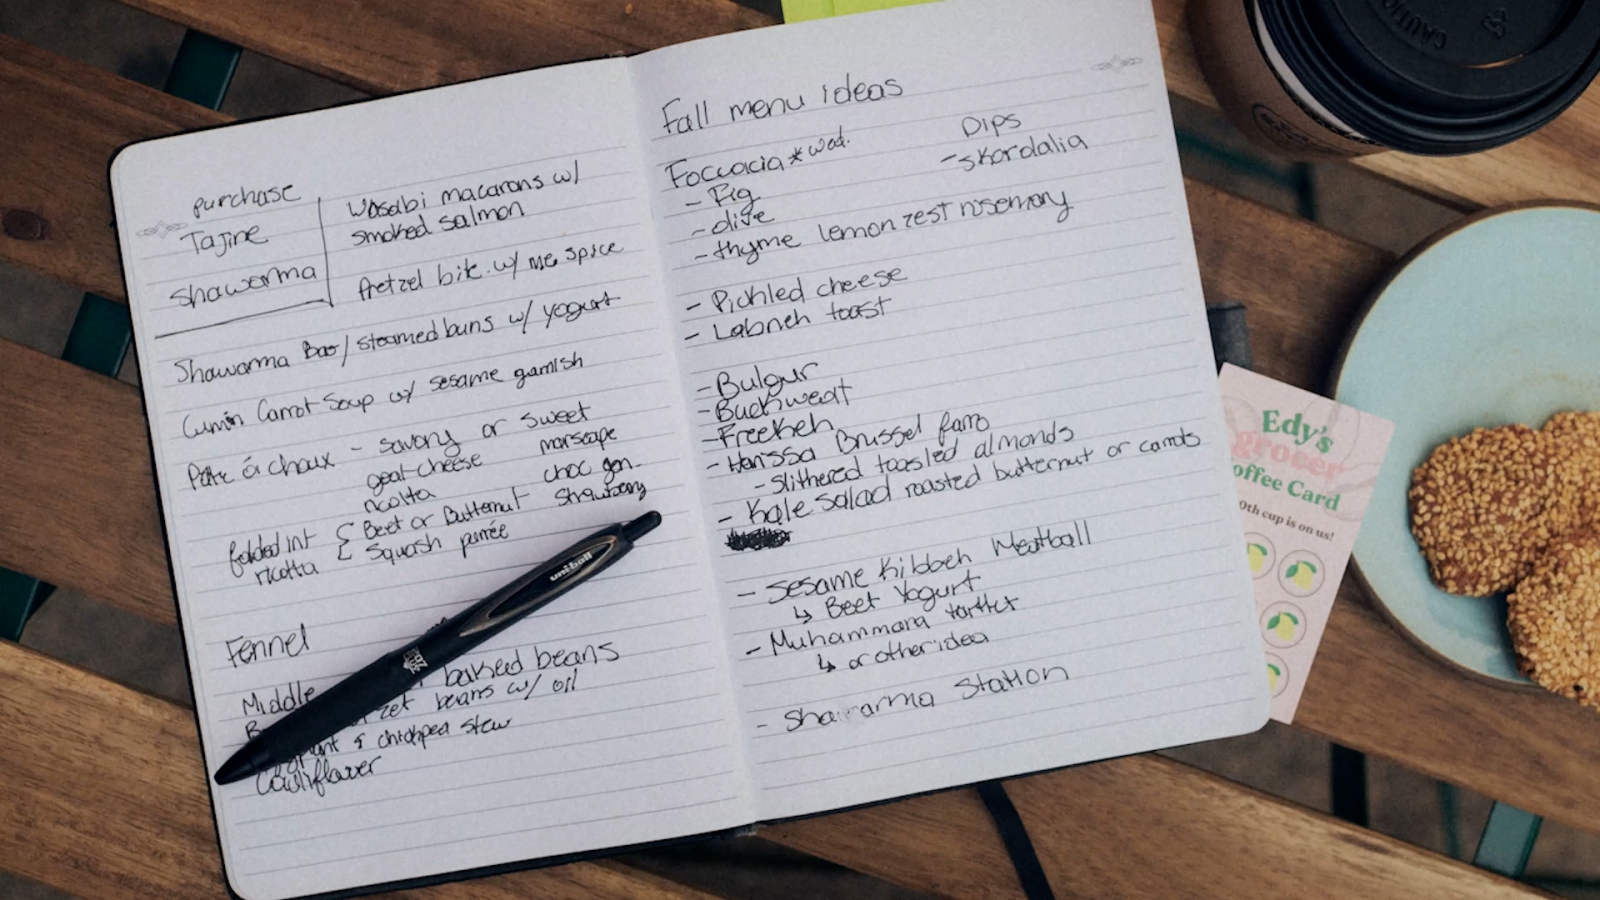 purchase
Tajine
Shawarma
Wasabi macarons w/
smoked salmon
Pretzel bite w/ me spice
Shawarma Bao/ steamed buns w/ yogurt
Cumin Carrot Soup w/ sesame garnish
Pate á choux - savory or sweet
goat cheese
ricotta
marscape
choc gan.
strawberry
folded int
ricotta
{ Beet or Butternut
Squash purrée
Fennel
Middle baked beans
beans w/ oil
& chickpea stew
Cauliflower
Fall menu ideas
Foccacia * wed.
- Fig
- olive
- thyme lemon zest rosemary
Dips
- skordalia
- Pickled cheese
- Labneh toast
- Bulgur
- Buckweat
- Freekeh
- Harissa Brussel farro
- Slithered toasled almonds
- Kale Salad roasted butternut or carrots
- Sesame Kibbeh Meatball
↳ Beet Yogurt
- Muhammara tartlet
↳ or other idea
- Shawarma Station
uni-ball
CAUTION
Edy's
grocer
offee Card
0th cup is on us!